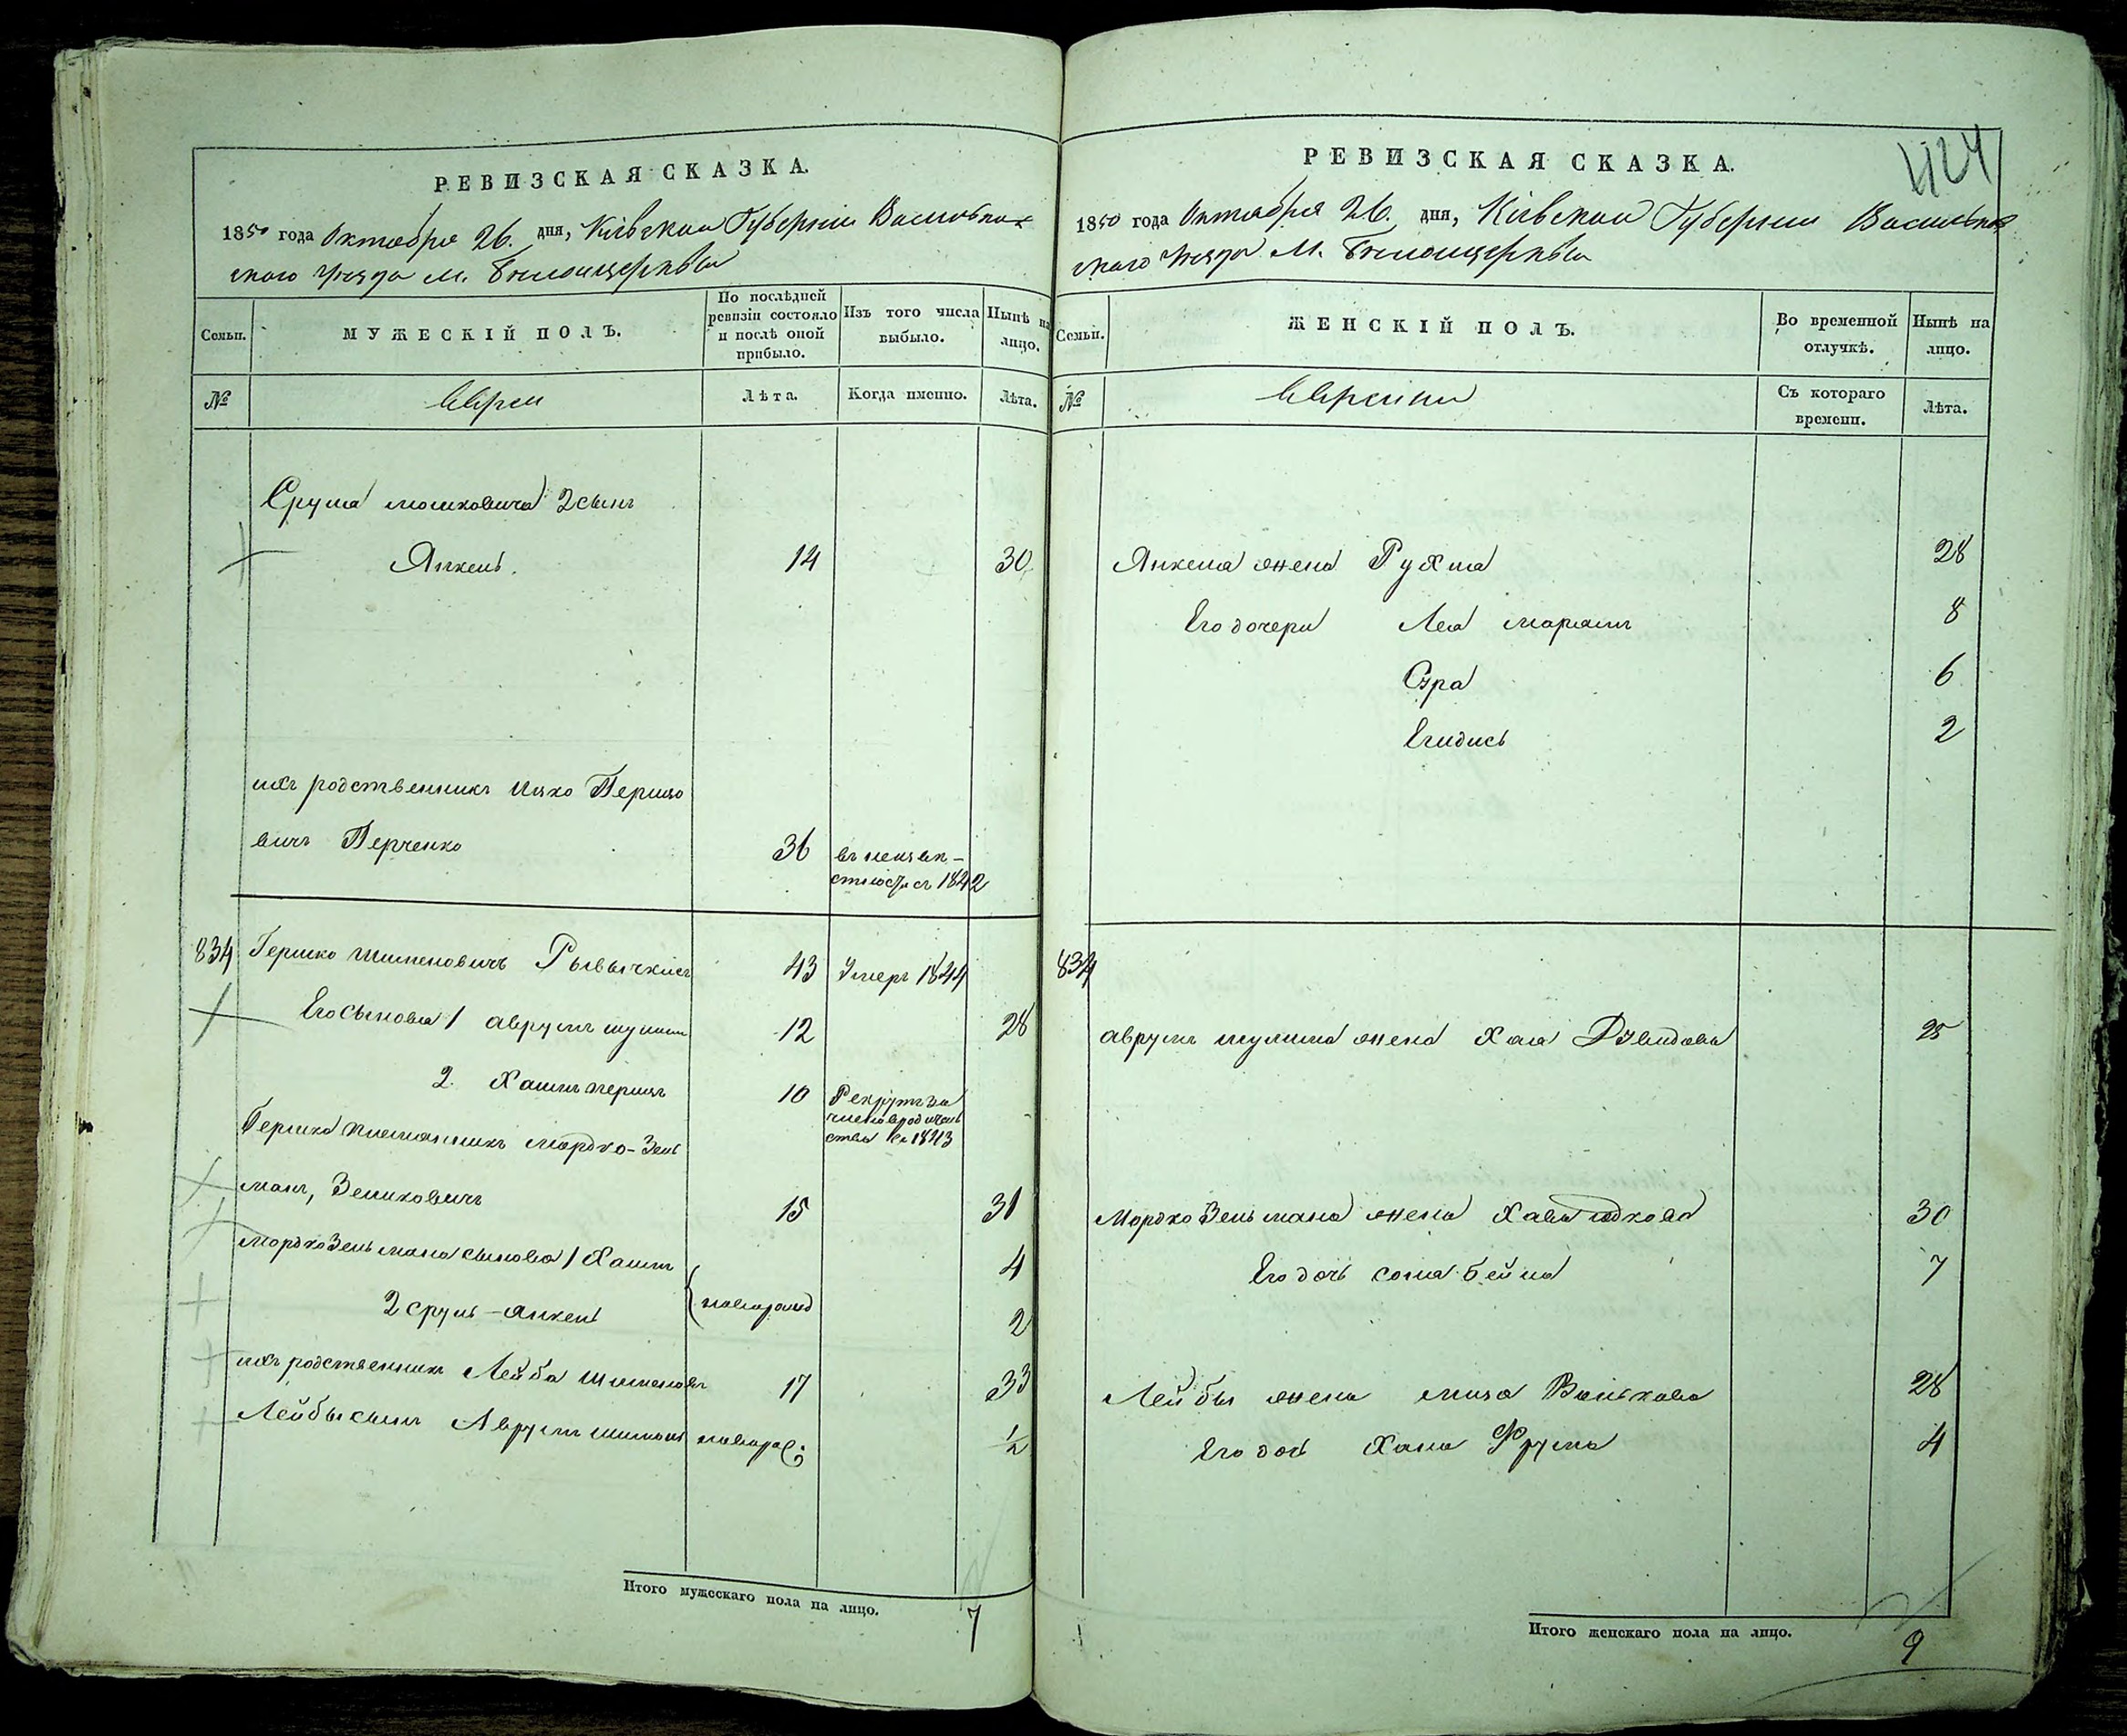 РЕВИЗСКАЯ СКАЗКА.
1850 года Октября 26. дня, Кіевской Губерніи Васильков-
скаго уезда м. Белоцерквы
Семьи.
МУЖЕСКІЙ ПОЛЪ.
По послѣдней
ревизіи состояло
и послѣ оной
прибыло.
Изъ того числа
выбыло.
Нынѣ на
лицо.
№
Евреи
Лѣта.
Когда именно.
Лѣта.
Сруля Мошковича 2 сынъ
Янкель. 14 30
ихъ родственникъ Ицко Перцо
вичъ Перченко 36 въ неизвѣ-
стности съ 1842
834 Гершко Шименовичъ 43 Умеръ 1844
Его сыновья 1 Аврумъ Шулим 12 28
2. Хаимъ Перецъ 10 Рекрутъ за
число еврод
ства въ 1843
Гершка племянникъ Мордко-Зель
манъ, Зеликовичъ 15 31
Мордко Зельмана сыновья 1 Хаимъ 4
2 Сруль-Янкель новорожд 2
ихъ родственникъ Лейба Шименов 17 33
Лейбы сынъ Аврумъ Шимонъ новорож: 1/2
Итого мужескаго пола на лицо. 7
424
РЕВИЗСКАЯ СКАЗКА.
1850 года Октября 26. дня, Кіевской Губерніи Васильков
скаго уезда м. Белоцерквы
Семьи.
ЖЕНСКІЙ ПОЛЪ.
Во временной
отлучкѣ.
Нынѣ на
лицо.
№
Еврейки
Съ котораго
времени.
Лѣта.
Янкеля жена Рухля 28
Его дочери Леа Марьямъ 8
Сура 6
2
834
Аврумъ Шулима жена Хая Дувидова 25
Мордко Зельмана жена Хава Юдкова 30
Его дочь Сося Бейла 7
Лейбы жена Волькова 28
Его дочь Хана Фрума 4
Итого женскаго пола на лицо. 9